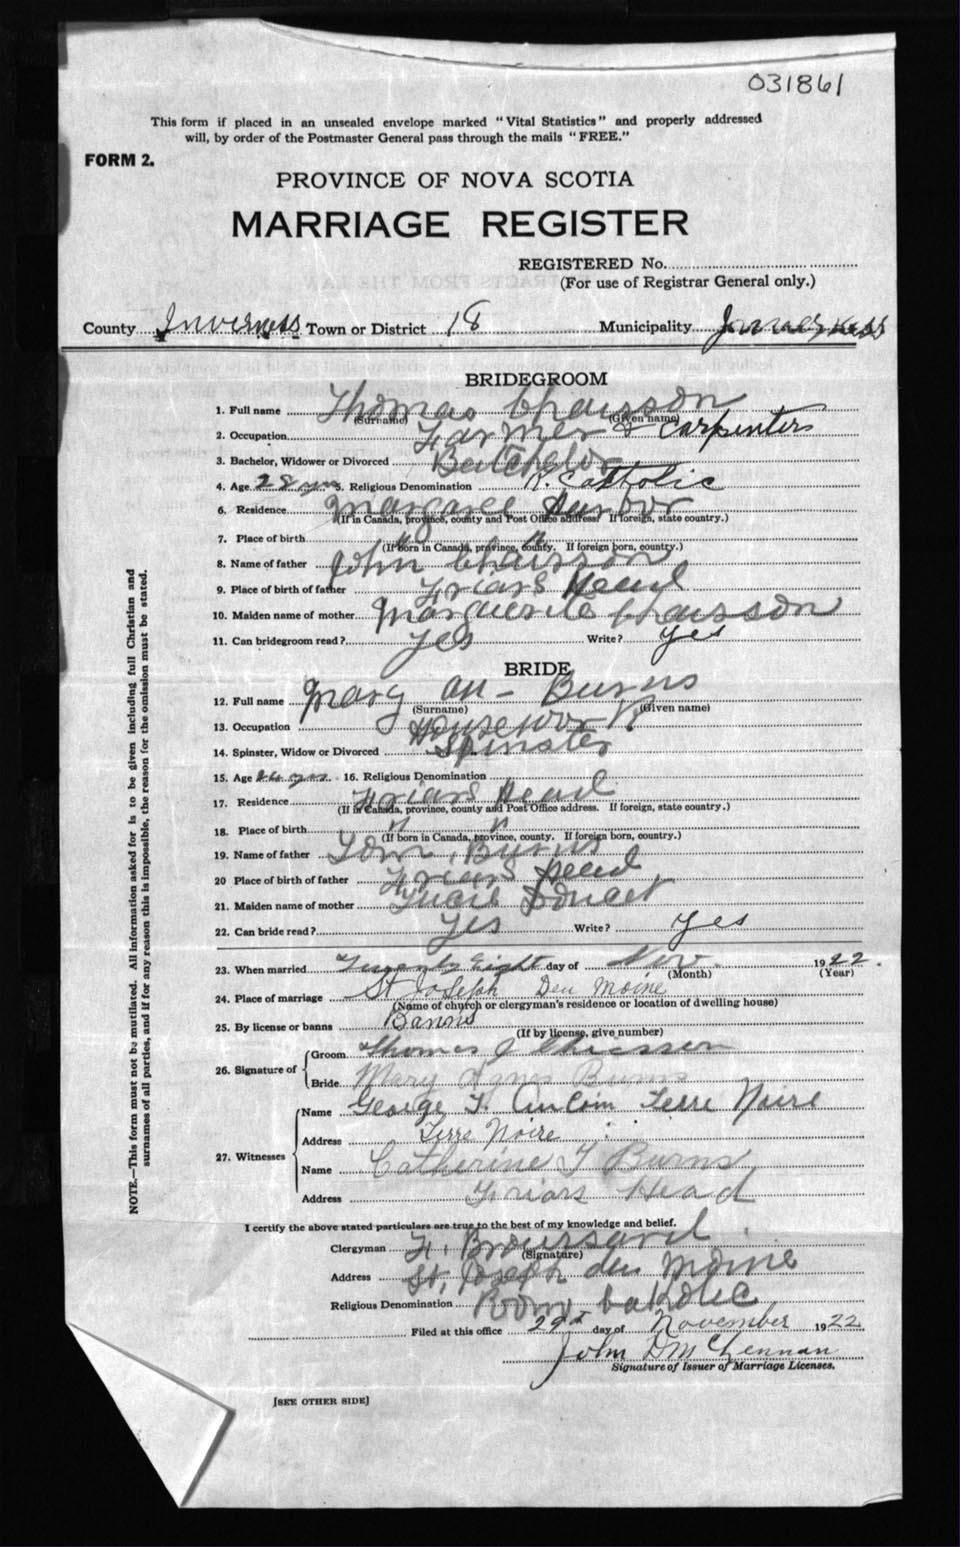 031861
This form if placed in an unsealed envelope marked "Vital Statistics" and properly addressed
will, by order of the Postmaster General pass through the mails "FREE."
FORM 2.
PROVINCE OF NOVA SCOTIA
MARRIAGE REGISTER
REGISTERED No.
(For use of Registrar General only.)
County Inverness Town or District 18 Municipality Inverness
BRIDEGROOM
1. Full name Thomas Chaisson
(Surname) (Given name)
2. Occupation Farmer & Carpenters
3. Bachelor, Widower or Divorced Batchelor
4. Age 28 yrs 5. Religious Denomination R. Catholic
6. Residence Margaree Harbor
(If in Canada, province, county and Post Office address. If foreign, state country.)
7. Place of birth " "
(If born in Canada, province, county. If foreign born, country.)
8. Name of father John Chaisson
9. Place of birth of father Friars Head
10. Maiden name of mother Marguerite Chaisson
11. Can bridegroom read? Yes Write? Yes
BRIDE
12. Full name Mary An - Burns
(Surname) (Given name)
13. Occupation Housework
14. Spinster, Widow or Divorced Spinster
15. Age yrs 16. Religious Denomination
17. Residence Friars Head
(If in Canada, province, county and Post Office address. If foreign, state country.)
18. Place of birth " "
(If born in Canada, province, county. If foreign born, country.)
19. Name of father Tom, Burns
20 Place of birth of father Friars Head
21. Maiden name of mother Lucie Doucet
22. Can bride read? Yes Write? Yes
23. When married Twenty Eight day of Nov. 1922.
(Month) (Year)
24. Place of marriage St Joseph Deu Moine
(Name of church or clergyman's residence or location of dwelling house)
25. By license or banns Banns
(If by license, give number)
26. Signature of
Groom Thomas J Chiasson
Bride Mary Agnes Burns
27. Witnesses
Name George F. AuCoin Terre Noire
Address Terre Noire
Name Catherine T Burns
Address Friars Head
I certify the above stated particulars are true to the best of my knowledge and belief.
Clergyman H. Broussard
(Signature)
Address St, Joseph deu Moine
Religious Denomination Rom Catholic
Filed at this office 29th day of November 1922
John D McLennan
Signature of Issuer of Marriage Licenses.
[SEE OTHER SIDE]
NOTE.—This form must not be mutilated. All information asked for is to be given including full Christian and
surnames of all parties, and if for any reason this is impossible, the reason for the omission must be stated.